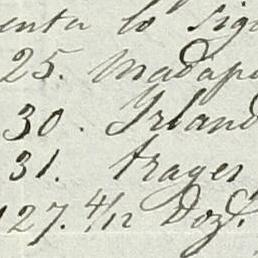 enta lo sig
25. Madap
30. Irland
31. trages
127. 4/12 Doz.